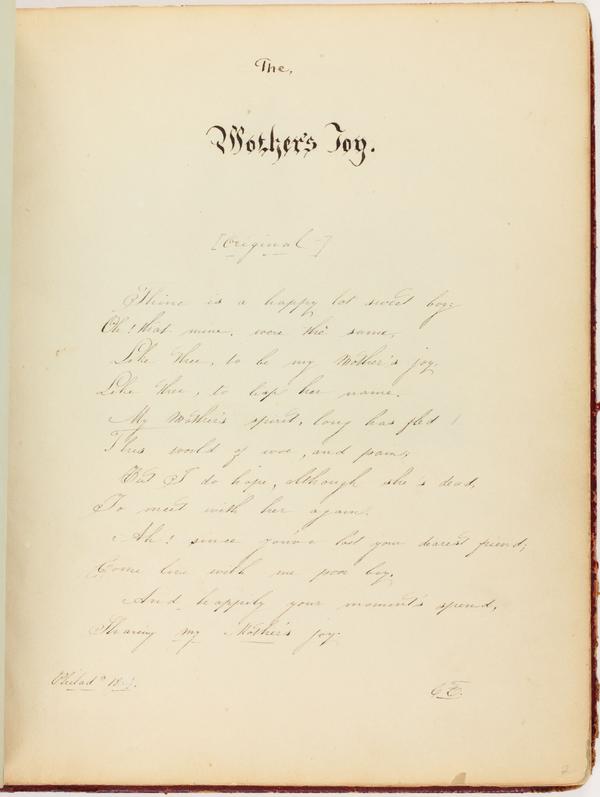 The,
Mother's Joy.
[Original-]
Thine is a happy lot sweet boy;
Oh! that mine, were the same,
Like thee, to be my Mother's joy,
Like thee, to lisp her name.
My Mother's spirit, long has fled!
This world of woe, and pain,
But I do hope, although she's dead,
To meet with her again.
Ah! since you've lost your dearest friend;
Come live with me poor boy,
And happily your moment's spend,
Sharing my Mother's joy.
Philada
2